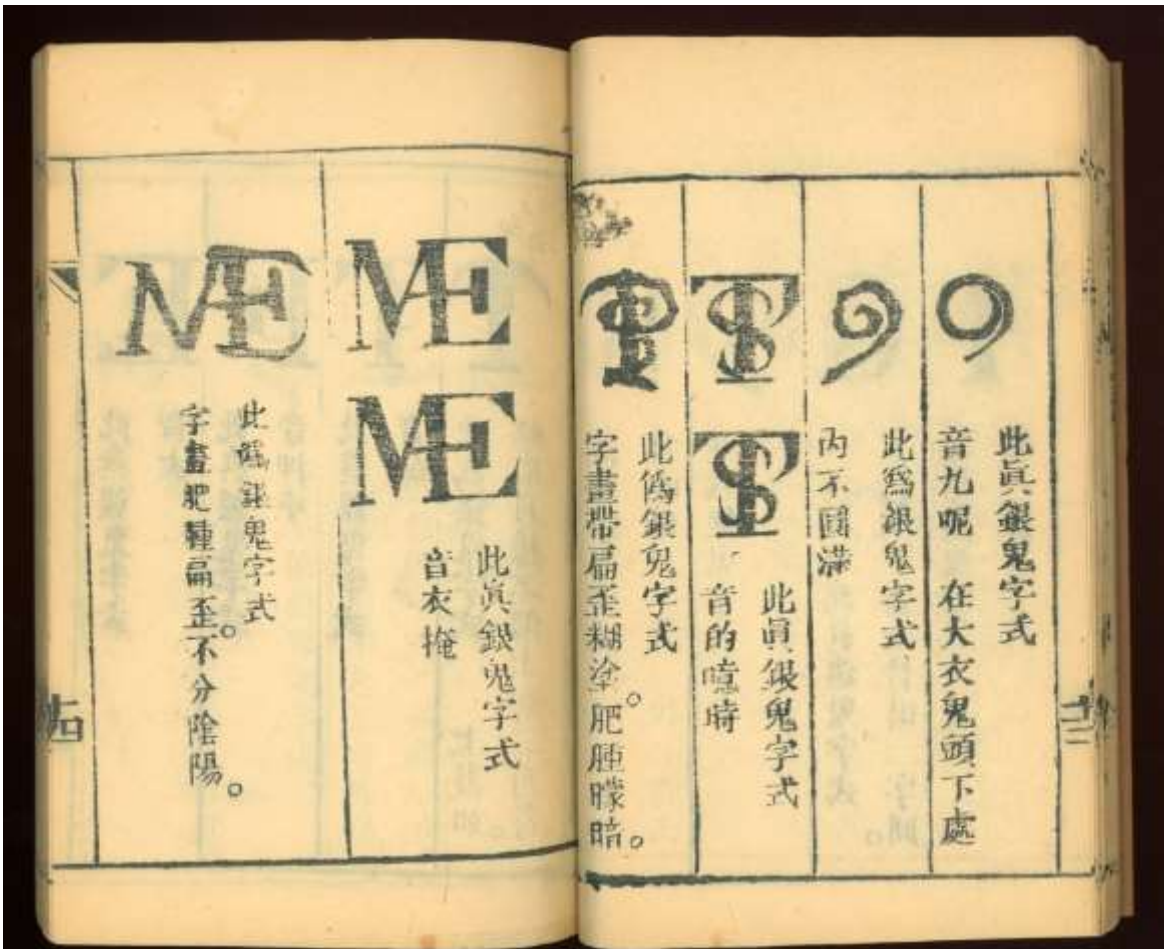 9
此眞銀鬼字式
音九呢　在大衣鬼頭下處
此爲銀鬼字式
內不圓滿
TS
TS
此眞銀鬼字式
音的噫時
此僞銀鬼字式
字畫帶扁歪糊塗。肥腫矇暗。
ME
ME
此眞銀鬼字式
音衣掩
ME
此僞銀鬼字式
字畫肥腫扁歪。不分陰陽。